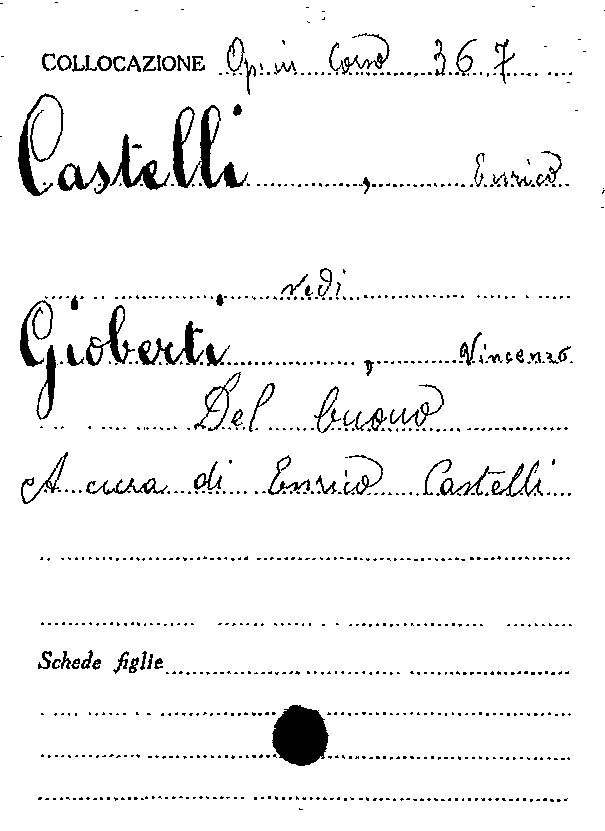 COLLOCAZIONE Op. in Corso 367
Castelli, Enrico
vedi
Gioberti, Vincenzo
Del buono
A cura di Enrico Castelli
Schede figlie